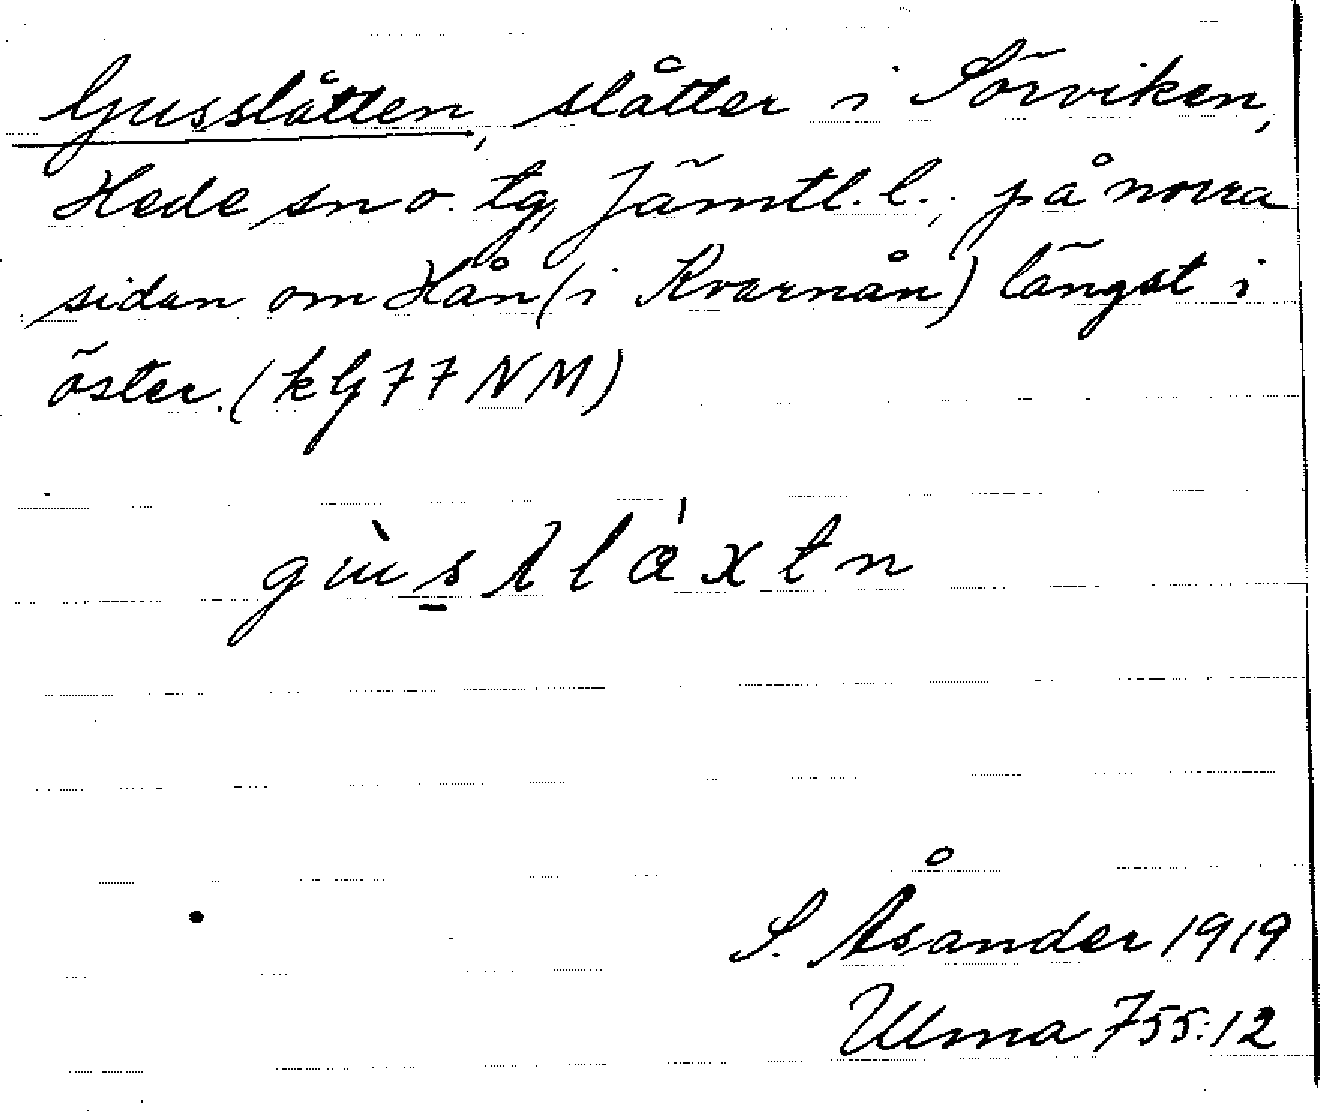 Gusslåtten, slåtter i Sörviken,
Hede sn o. tg, Jämtl. l., på norra
siden om Hån (i Kvarnån) längst i
öster. (k G 77 NM)
S. Åsander 1919
Ulma 755:12